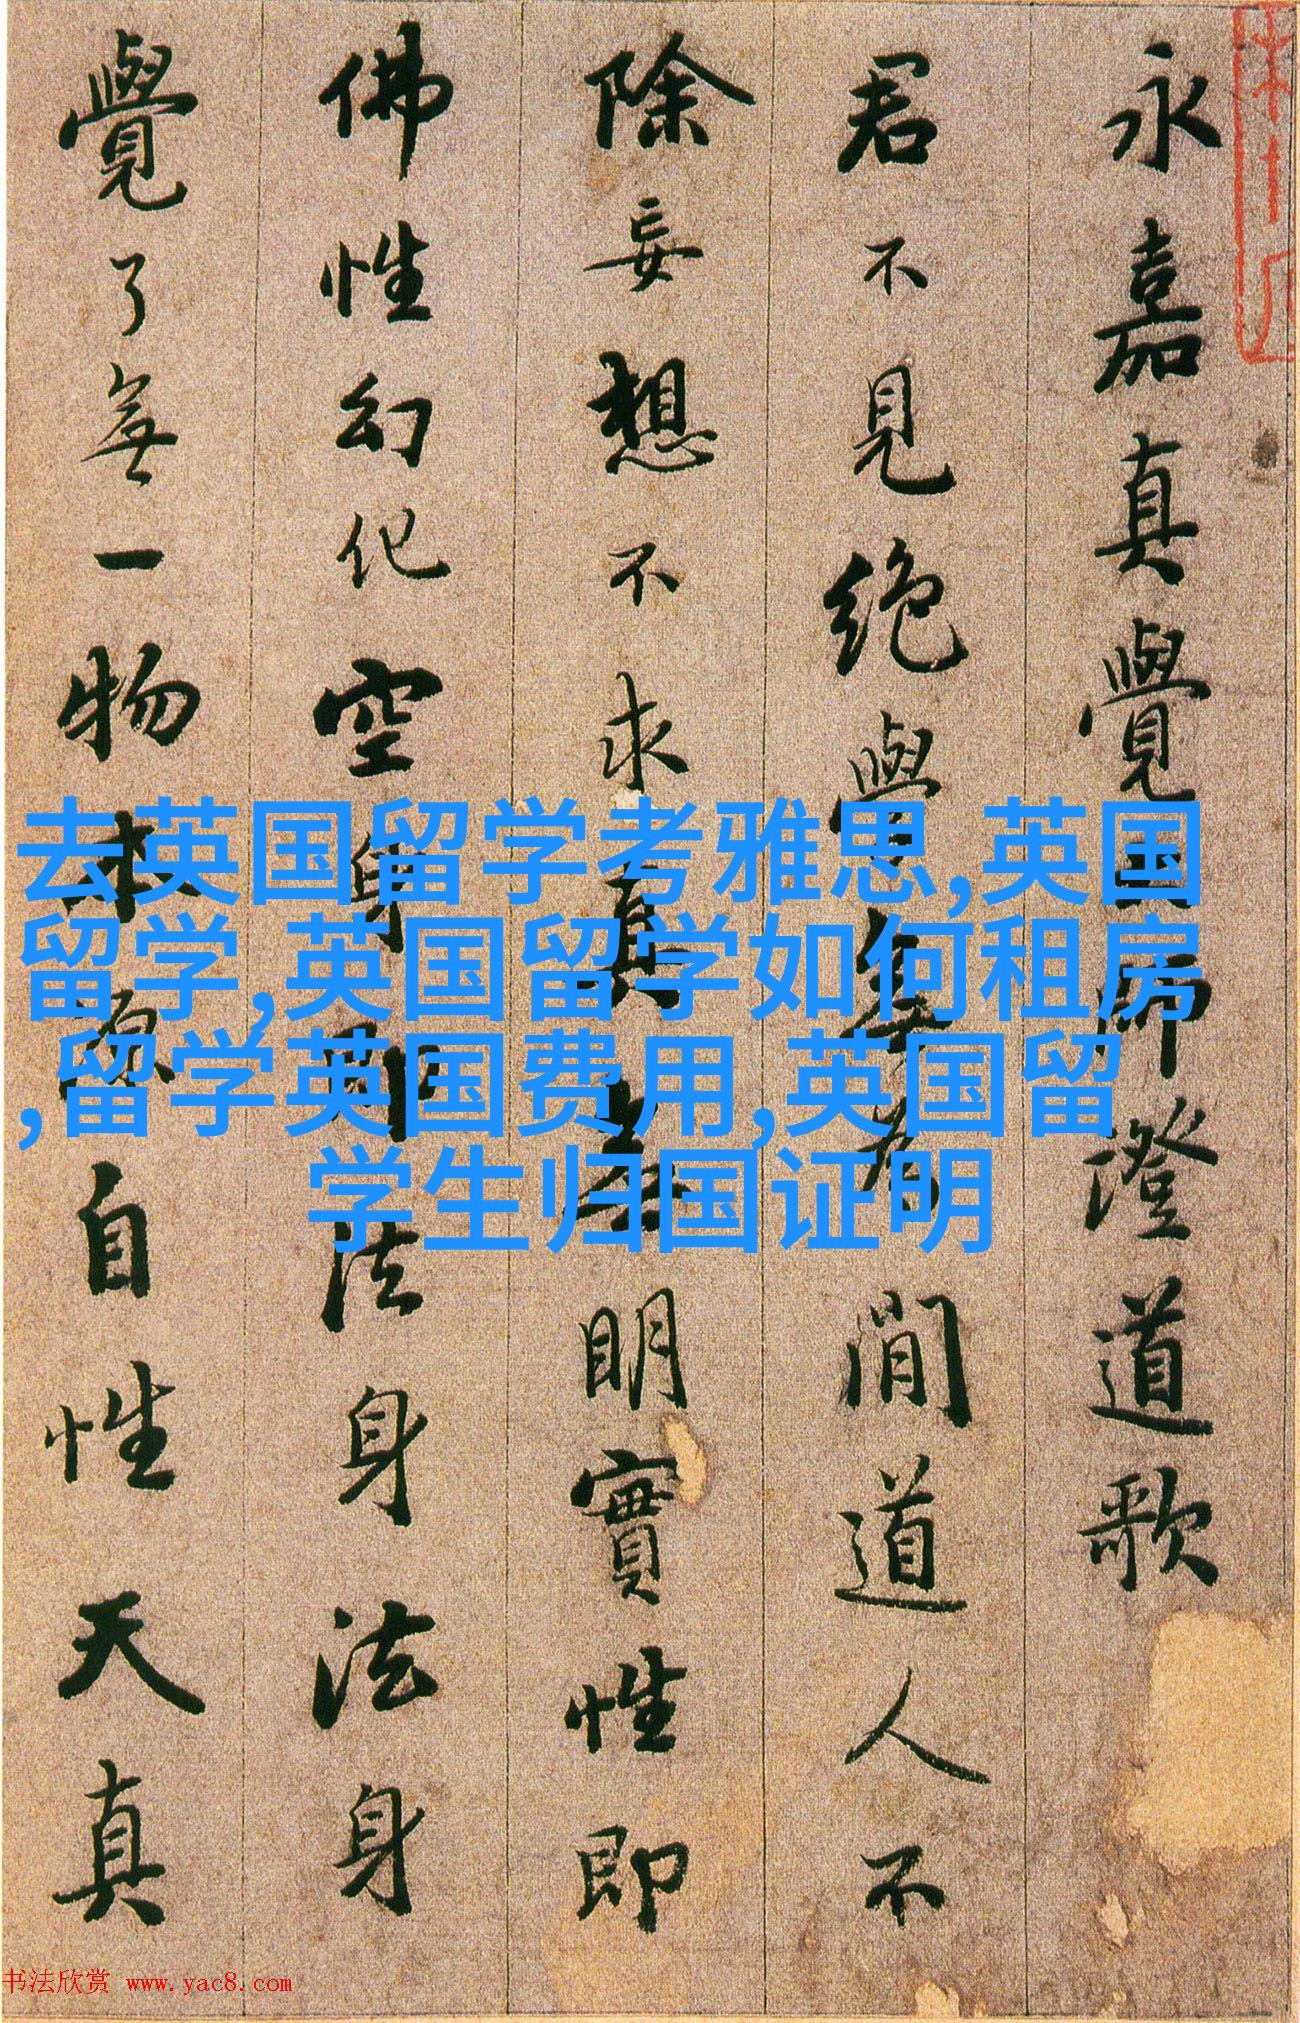 永嘉真覺大師澄道歌
君不見絕學無為閒道人不
除妄想不求真無明實性即
佛性幻化空身即法身法身
覺了無一物本源自性天真
去英国留学考雅思,英国
留学,英国留学如何租房
,留学英国费用,英国留
学生归国证明
书法欣赏 www.yac8.com